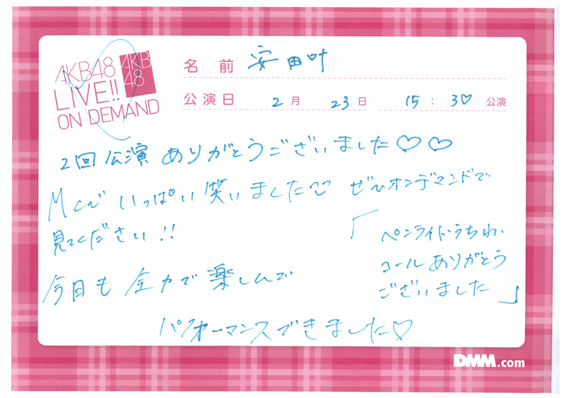 AKB48
LIVE!!
ON DEMAND
AKB
48
名前 安田叶
公演日 2月 23日 15:30 公演
2回公演 ありがとうございました♡♡
MCで いっぱい 笑いました ぜひオンデマンドで
見てください!!
「ペンライト・うちわ、
コールありがとう
ございました」
今日も 全力で 楽しんで
パフォーマンスできました♡
DMM.com